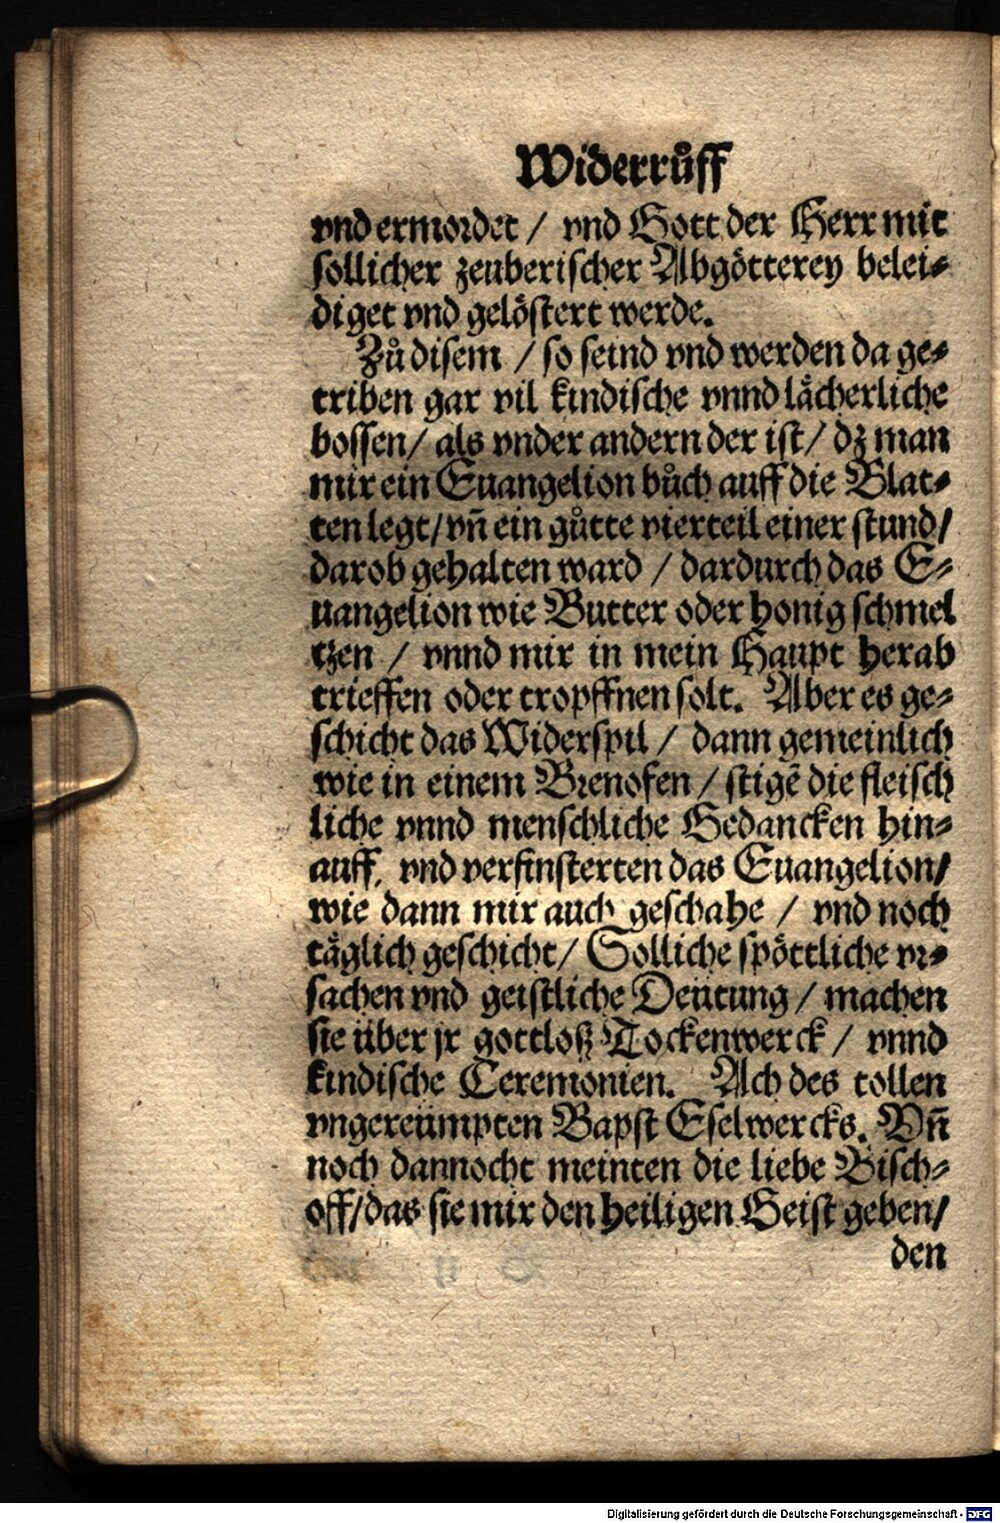 Widerrůff
vnd ermordet / vnd Gott der Herr mit
sollicher zeuberischer Abgötterey belei⸗
diget vnd gelöstert werde.
Zů disem / so seind vnd werden da ge⸗
triben gar vil kindische vnnd lächerliche
bossen / als vnder andern der ist / dz man
mir ein Euangelion bůch auff die Blat⸗
ten legt / vñ ein gůtte vierteil einer stund /
darob gehalten ward / dardurch das E⸗
uangelion wie Butter oder honig schmel
tzen / vnnd mir in mein Haupt herab
trieffen oder tropffnen solt. Aber es ge⸗
schicht das Widerspil / dann gemeinlich
wie in einem Brenofen / stigē die fleisch
liche vnnd menschliche Gedancken hin⸗
auff, vnd verfinsterten das Euangelion /
wie dann mir auch geschahe / vnd noch
täglich geschicht / Solliche spöttliche vr⸗
sachen vnd geistliche Deütung / machen
sie über jr gottloß Tockenwerck / vnnd
kindische Ceremonien. Ach des tollen
vngereümpten Bapst Eselwercks. Vñ
noch dannocht meinten die liebe Bisch⸗
off / das sie mir den heiligen Geist geben /
den
Digitalisierung gefördert durch die Deutsche Forschungsgemeinschaft - DFG